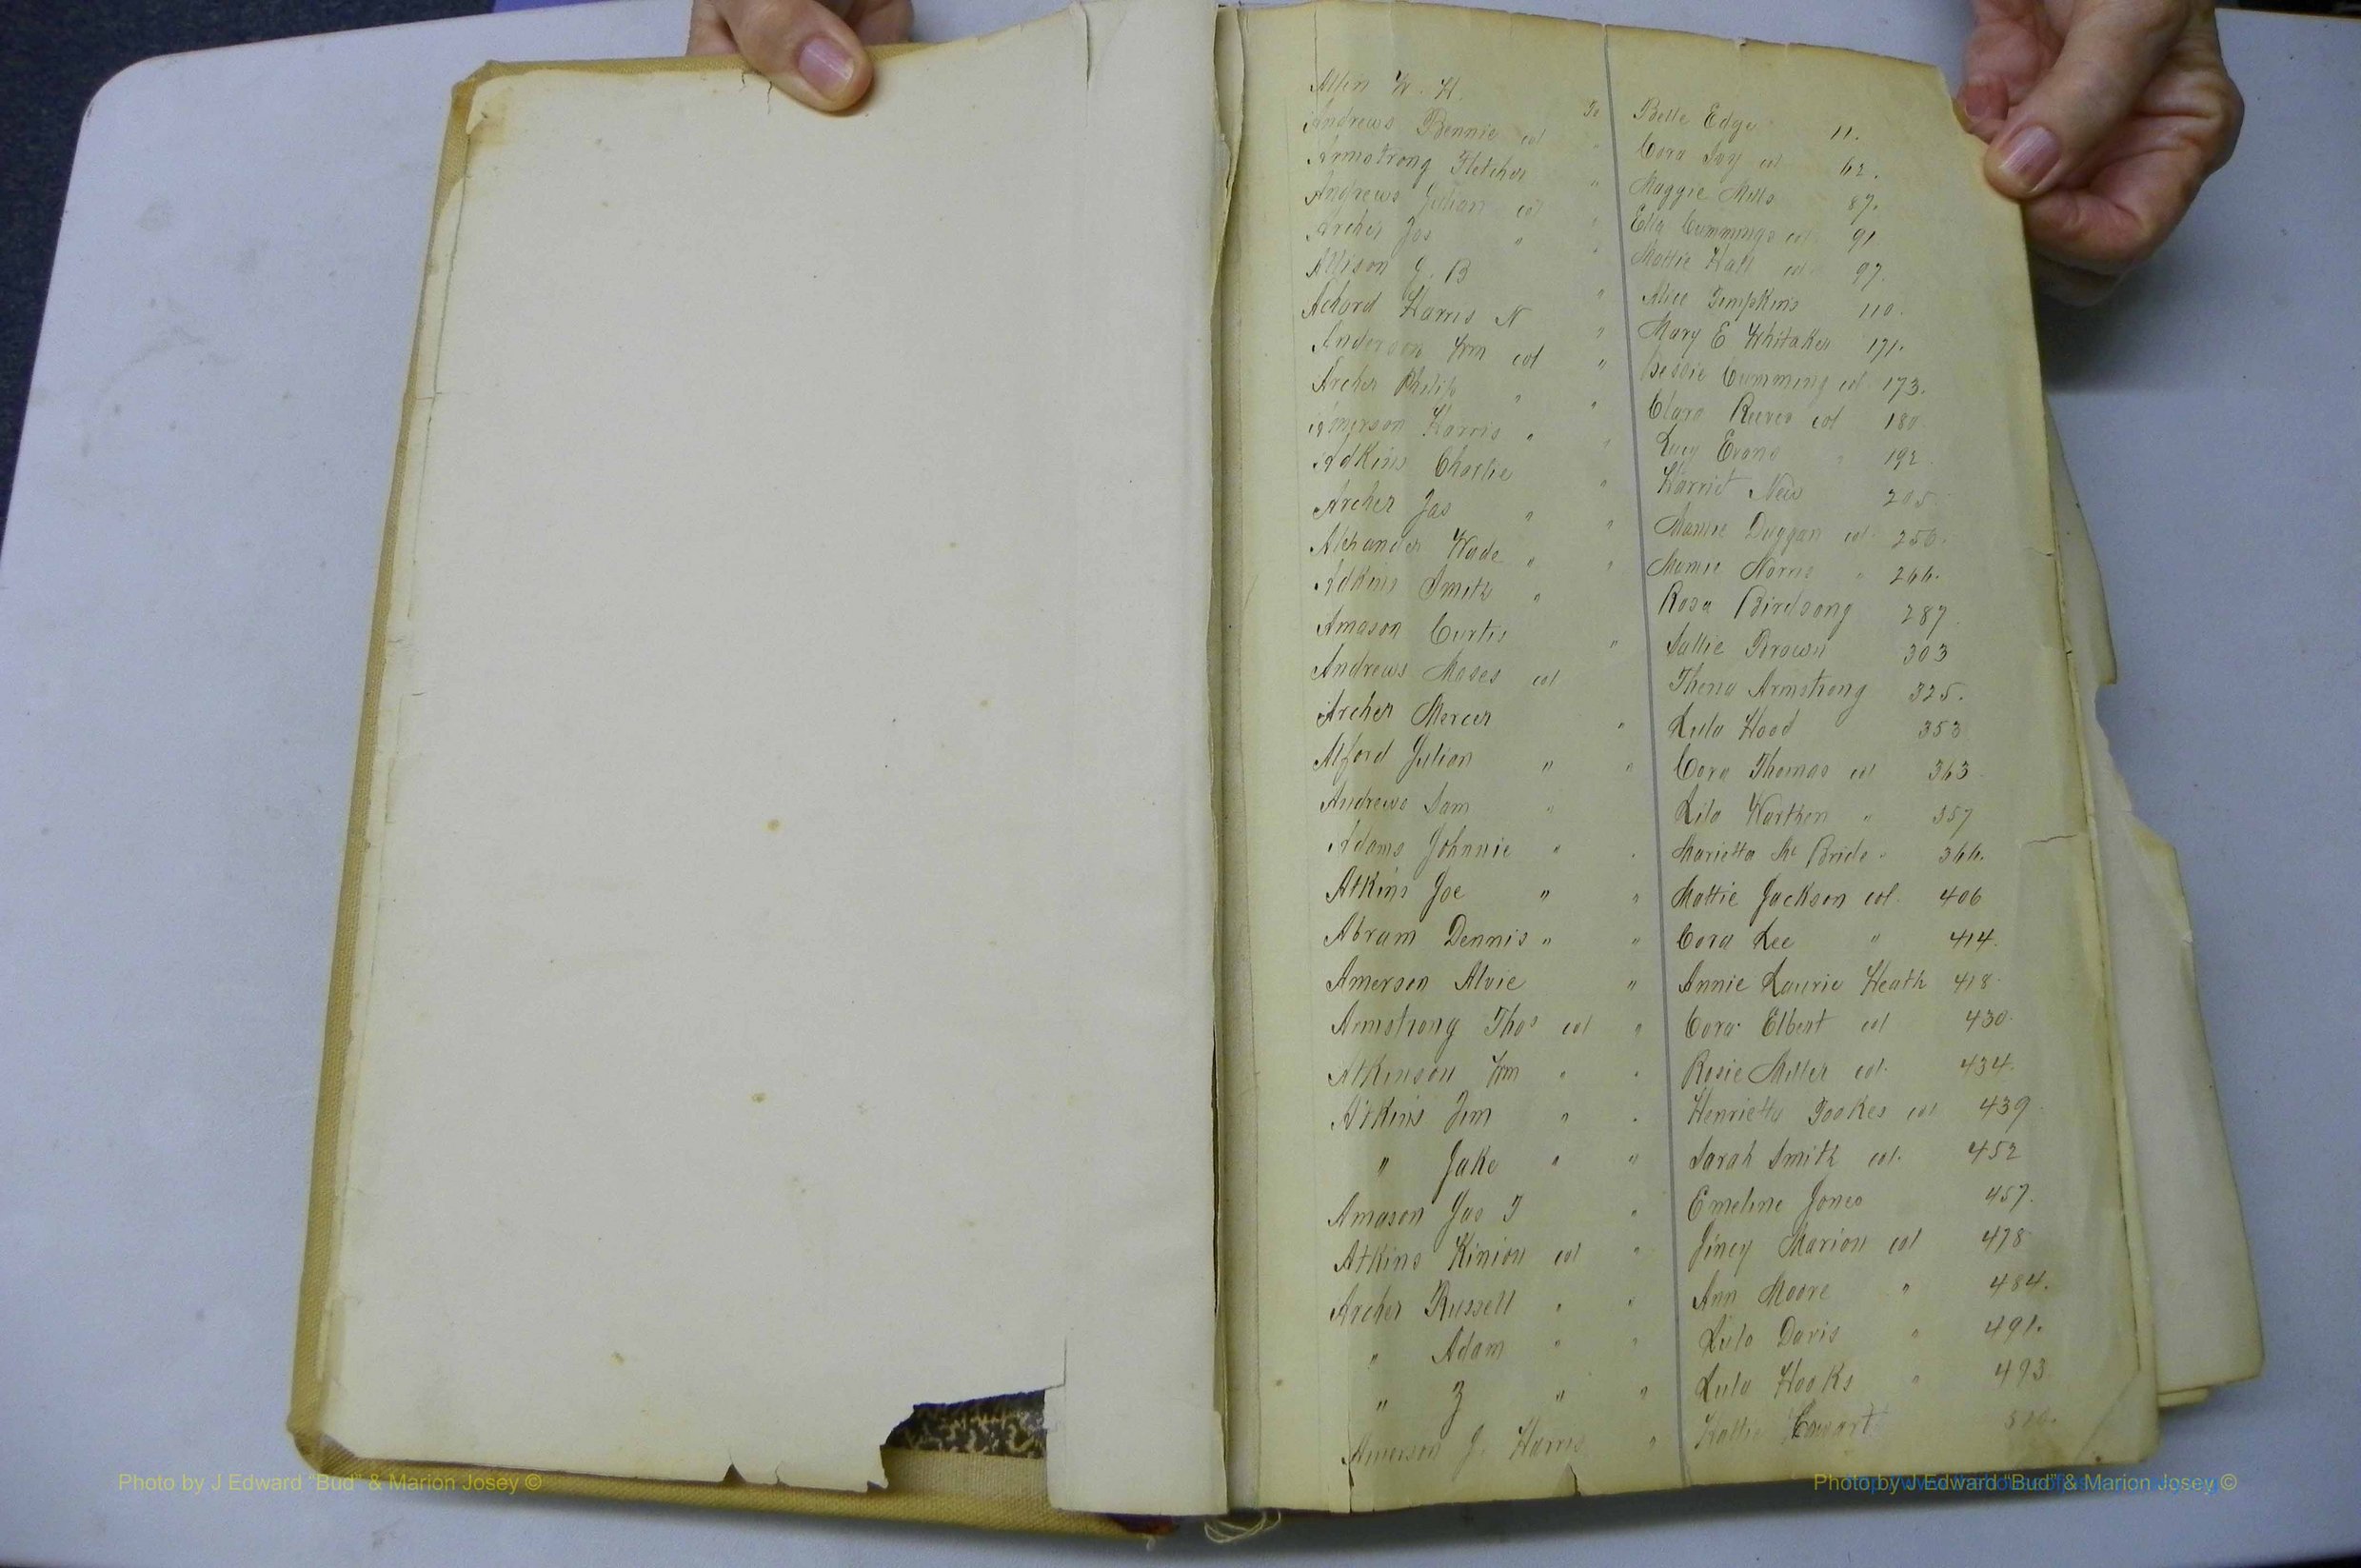 Allen W. H. To Belle Edge 11.
Andrews Bennie col " Cora Ivy col 62.
Armstrong Fletcher " Maggie Mills 87.
Andrews Julian col " Ella Cummings col 91
Archer Jas " " Mattie Hall col 97.
Allison J. B " Alice Timpkins 110.
Achord Harris N " Mary E Whitaker 171.
Anderson Wm col " Bessie Cumming col 173.
Archer Philip " " Clara Reeves col 180
Amerson Harris " " Lucy Evans " 192
Adkins Charlie " Harriet New 205
Archer Jas " " Mamie Duggan col 256.
Alexander Wade " " Mamie Norris " 266.
Adkins Smith " Rosa Birdsong 287
Amason Curtis " Sallie Brown 303
Andrews Moses col Thena Armstrong 325.
Archer Mercer " Lula Hood 353
Alford Julian " " Cora Thomas col 363
Andrews Sam " Lila Warthen " 357
Adams Johnnie " " Marietta McBride " 366.
Atkins Joe " " Mattie Jackson col. 406
Abram Dennis " " Cora Lee " 414.
Amerson Alvie " Annie Laurie Heath 418
Armstrong Thos col " Cora Elbert col 430
Atkinson Wm " " Rosie Miller col. 434.
Atkins Jim " " Henrietta Tookes col 439
" Jake " " Sarah Smith col. 452
Amason Jas T " Emeline Jones 457.
Atkins Kinion col " Jincy Marion col 478
Archer Russell " " Ann Moore " 484.
" Adam " " Lula Davis " 491.
" Z " " Lula Hooks " 493
Amerson J. Harris " Hattie Cowart 510.
Photo by J Edward "Bud" & Marion Josey ©
Photo by J Edward "Bud" & Marion Josey ©